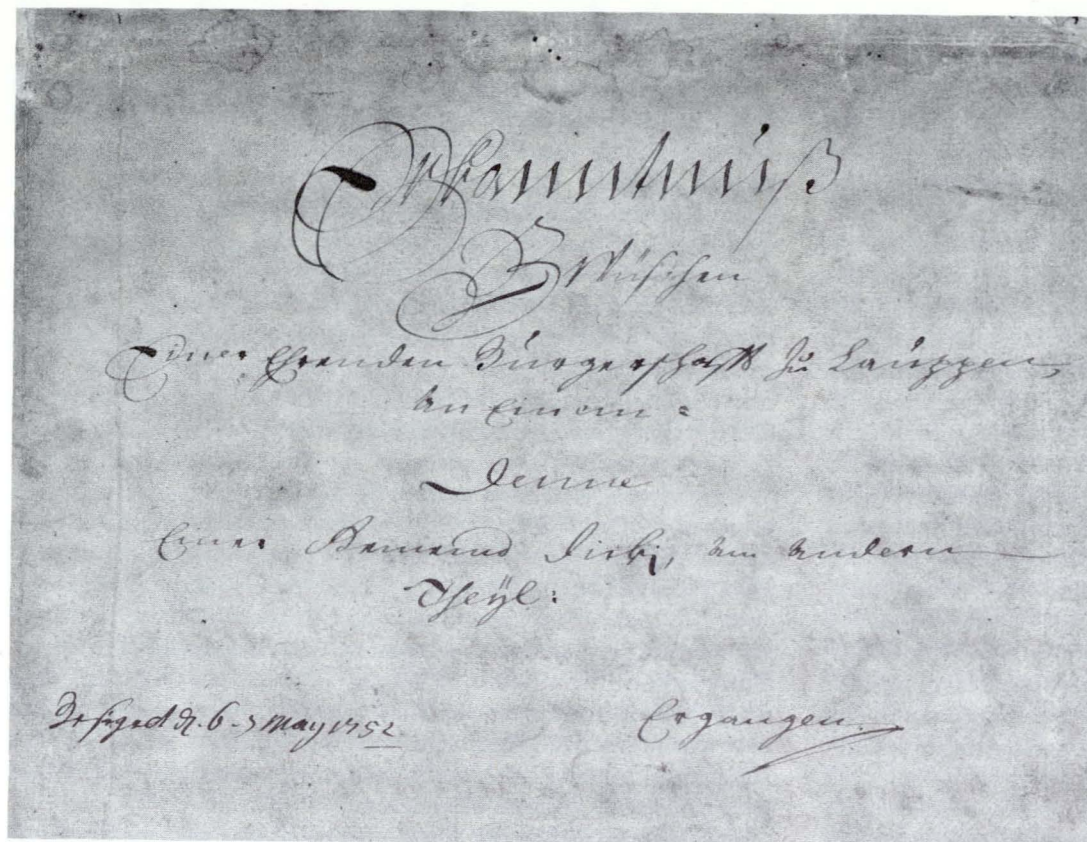 Erkanntnuß
Zwüschen
Einer Ehrenden Burgerschafft zu Lauppen,
an Einem =
Denne
Einer Gemeind Dicki, am andern
Theÿl:
Ergangen.
May 1752